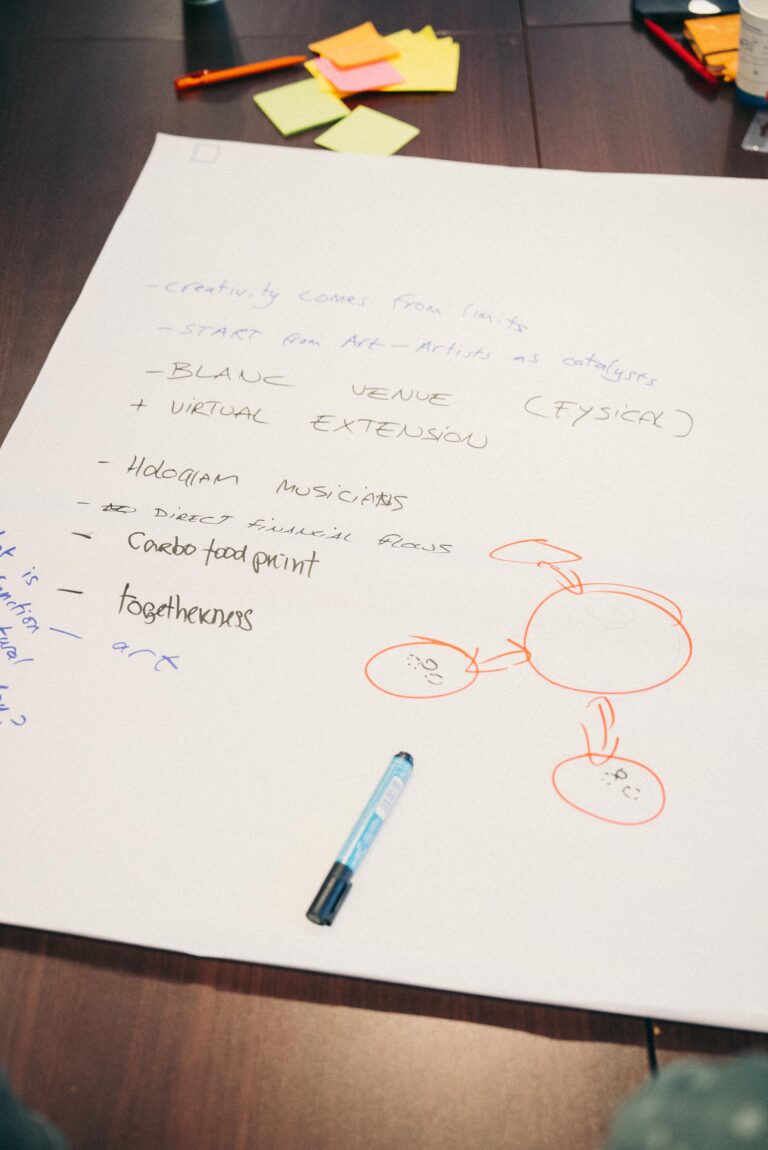 - creativity comes from limits
- START from Art - Artists as catalyses
- BLANC VENUE (FYSICAL)
+ VIRTUAL EXTENSION
- Hologram MUSICIANS
- DIRECT FINANCIAL FLOWS
- Carbo foodprint
- togetherness
- art
is